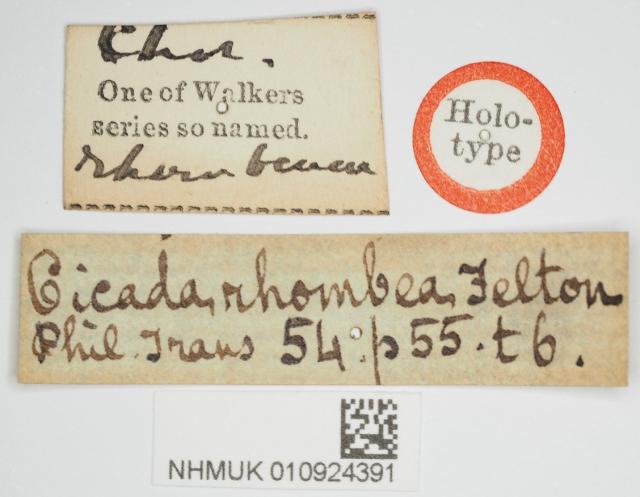 One of Walkers
series so named.
Holo-
type
Cicada, rhombea, Felton
Phil. Trans 54. p 55. t 6.
NHMUK 010924391